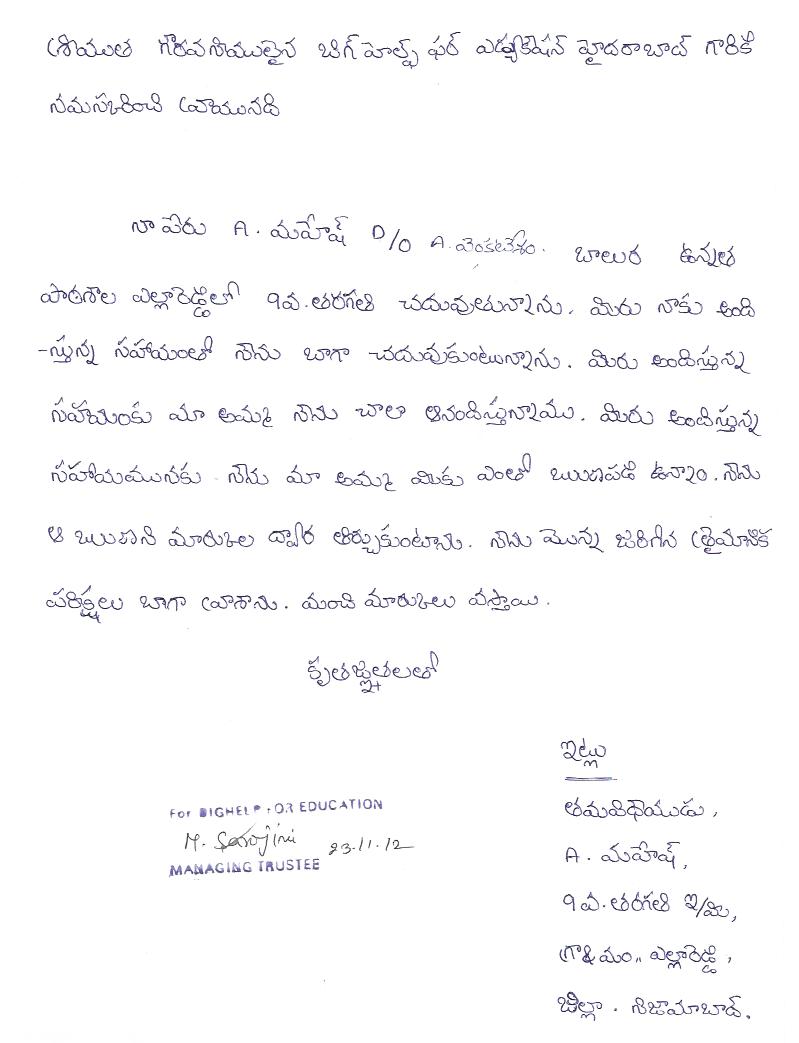 శ్రీయుత గౌరవనీయులైన బిగ్ హెల్ప్ ఫర్ ఎడ్యుకేషన్ హైదరాబాద్ గారికి
నమస్కరించి వ్రాయునది
నా పేరు A. మహేష్ D/O A. వెంకటేశం. బాలుర ఉన్నత
పాఠశాల ఎల్లారెడ్డిలో 9వ.తరగతి చదువుతున్నాను. మీరు నాకు అంది
-స్తున్న సహాయంతో నేను బాగా చదువుకుంటున్నాను. మీరు అందిస్తున్న
సహాయంకు మా అమ్మ నేను చాలా ఆనందిస్తున్నాము. మీరు అందిస్తున్న
సహాయమునకు నేను మా అమ్మ మీకు ఎంతో ఋణపడి ఉన్నాం. నేను
ఆ ఋణాన్ని మార్కుల ద్వార తీర్చుకుంటాను. నేను మొన్న జరిగిన త్రైమాసిక
పరీక్షలు బాగా వ్రాశాను. మంచి మార్కులు వస్తాయి.
కృతజ్ఞతలతో
ఇట్లు
తమవిధేయుడు,
A. మహేష్,
9వ.తరగతి ఇ/మీ,
గ్రా& మం,, ఎల్లారెడ్డి,
జిల్లా. నిజామాబాద్.
For BIGHELP FOR EDUCATION
M. Sarojini 23.11.12
MANAGING TRUSTEE